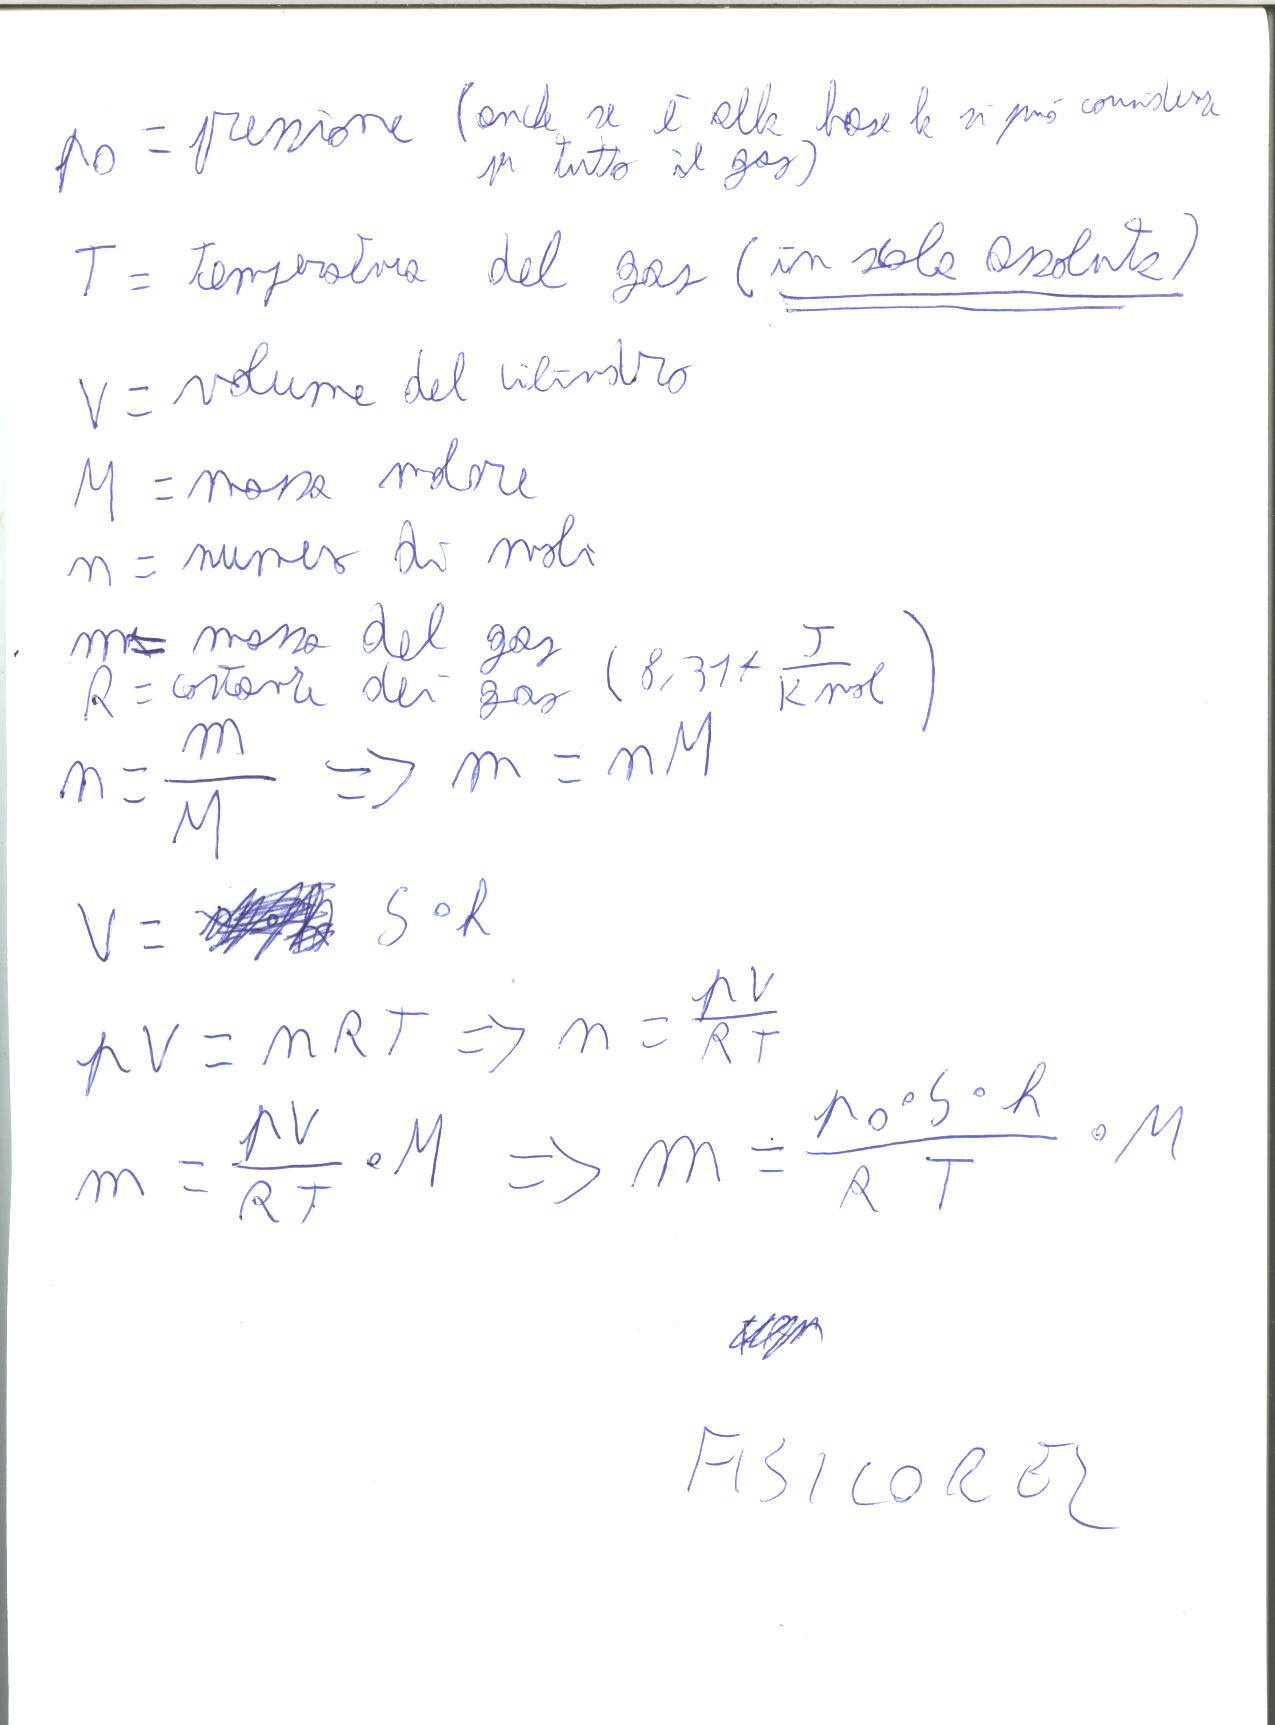 p0 = pressione (anche se è alla base la si può considerare
per tutto il gas)
T = temperatura del gas (in scala assoluta)
V = volume del cilindro
M = massa molare
n = numero di moli
m = massa del gas
R = costante dei gas (8,314 J/K mol)
n = m/M => m = nM
V = S∘h
pV = nRT => n = pV/RT
m = pV/RT • M => m = p0∘S∘h/R T ∘ M
FISICOREZ